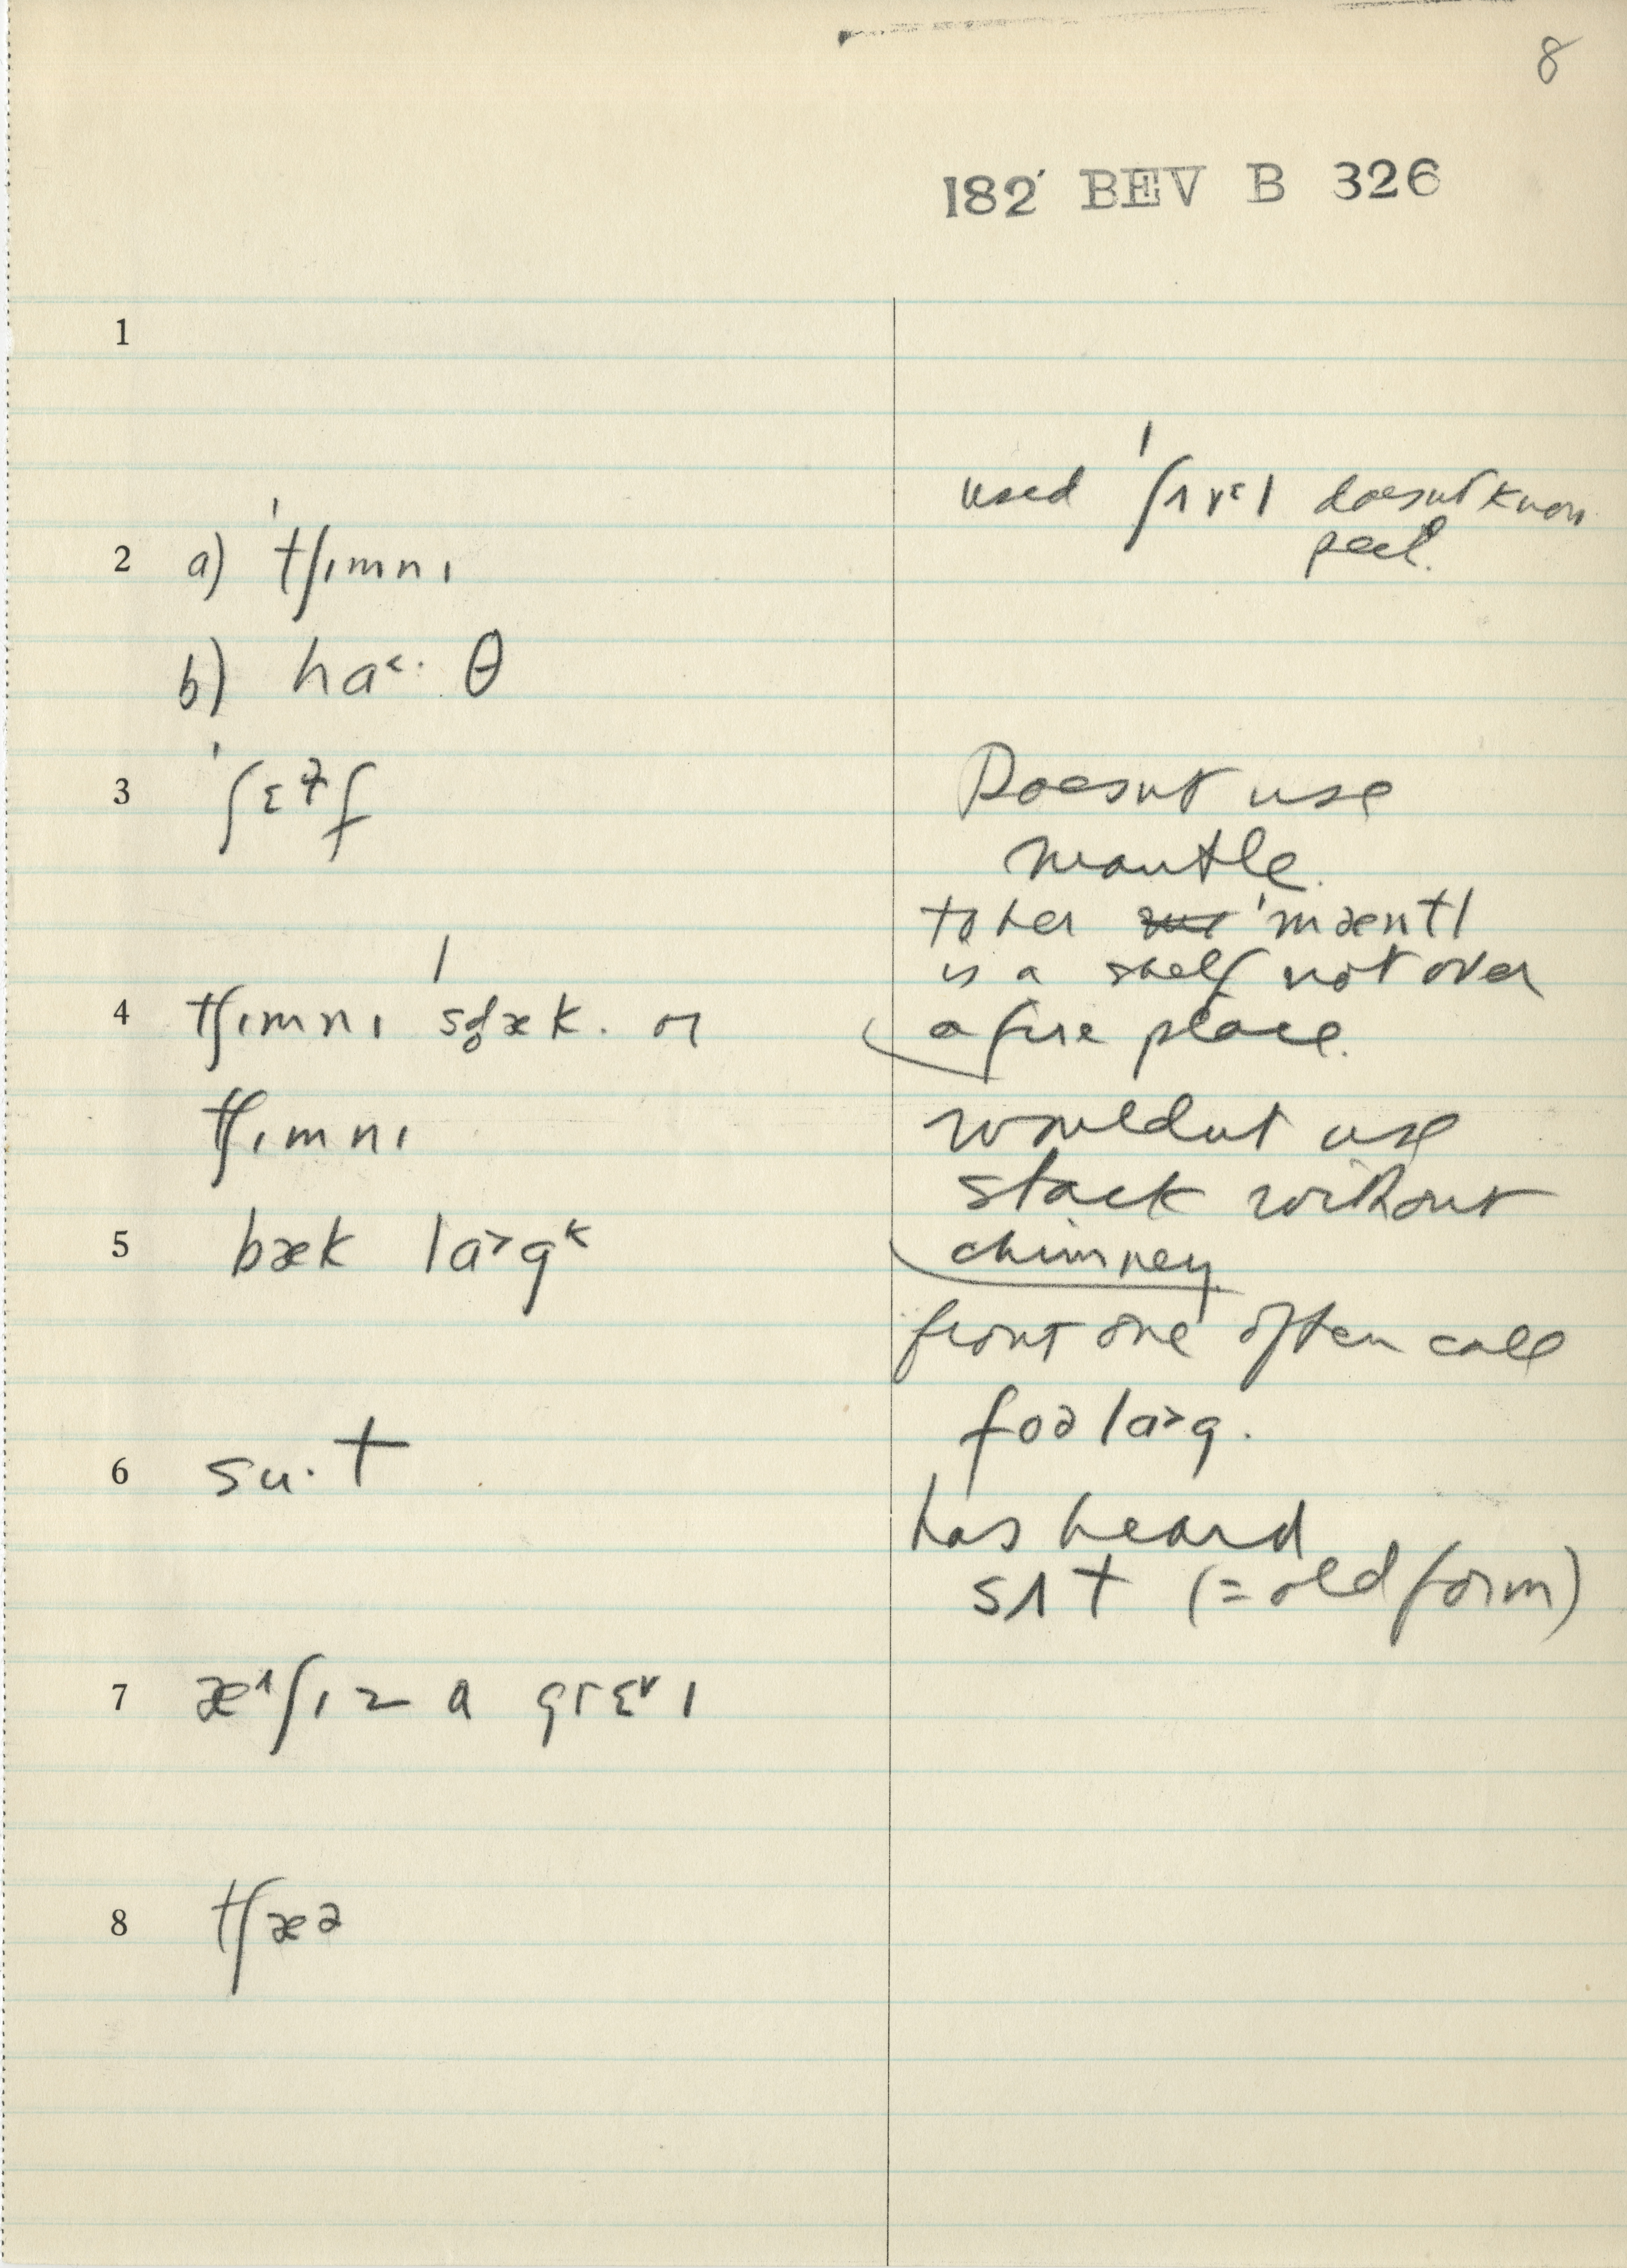 8
182 BEV B 326
1
used ˈʃʌvəl doesnt know
peel.
2 a) ˈtʃɪmnɪ
b) ha˂· θ
3 ˈʃɛɫf
Doesnt use
mantle.
to her ˈmæntl
is a shelf not over
a fire place.
4 tʃɪmnɪ ˈsd̥æk. or
tʃɪmnɪ
wouldnt use
stack without
chimney
5 bæk la˃gᵏ
front one often call
foə la˃g.
6 su·t
has heard
sʌt (= old form)
7 æʃɪz a grɛvɪ
8 tʃæə